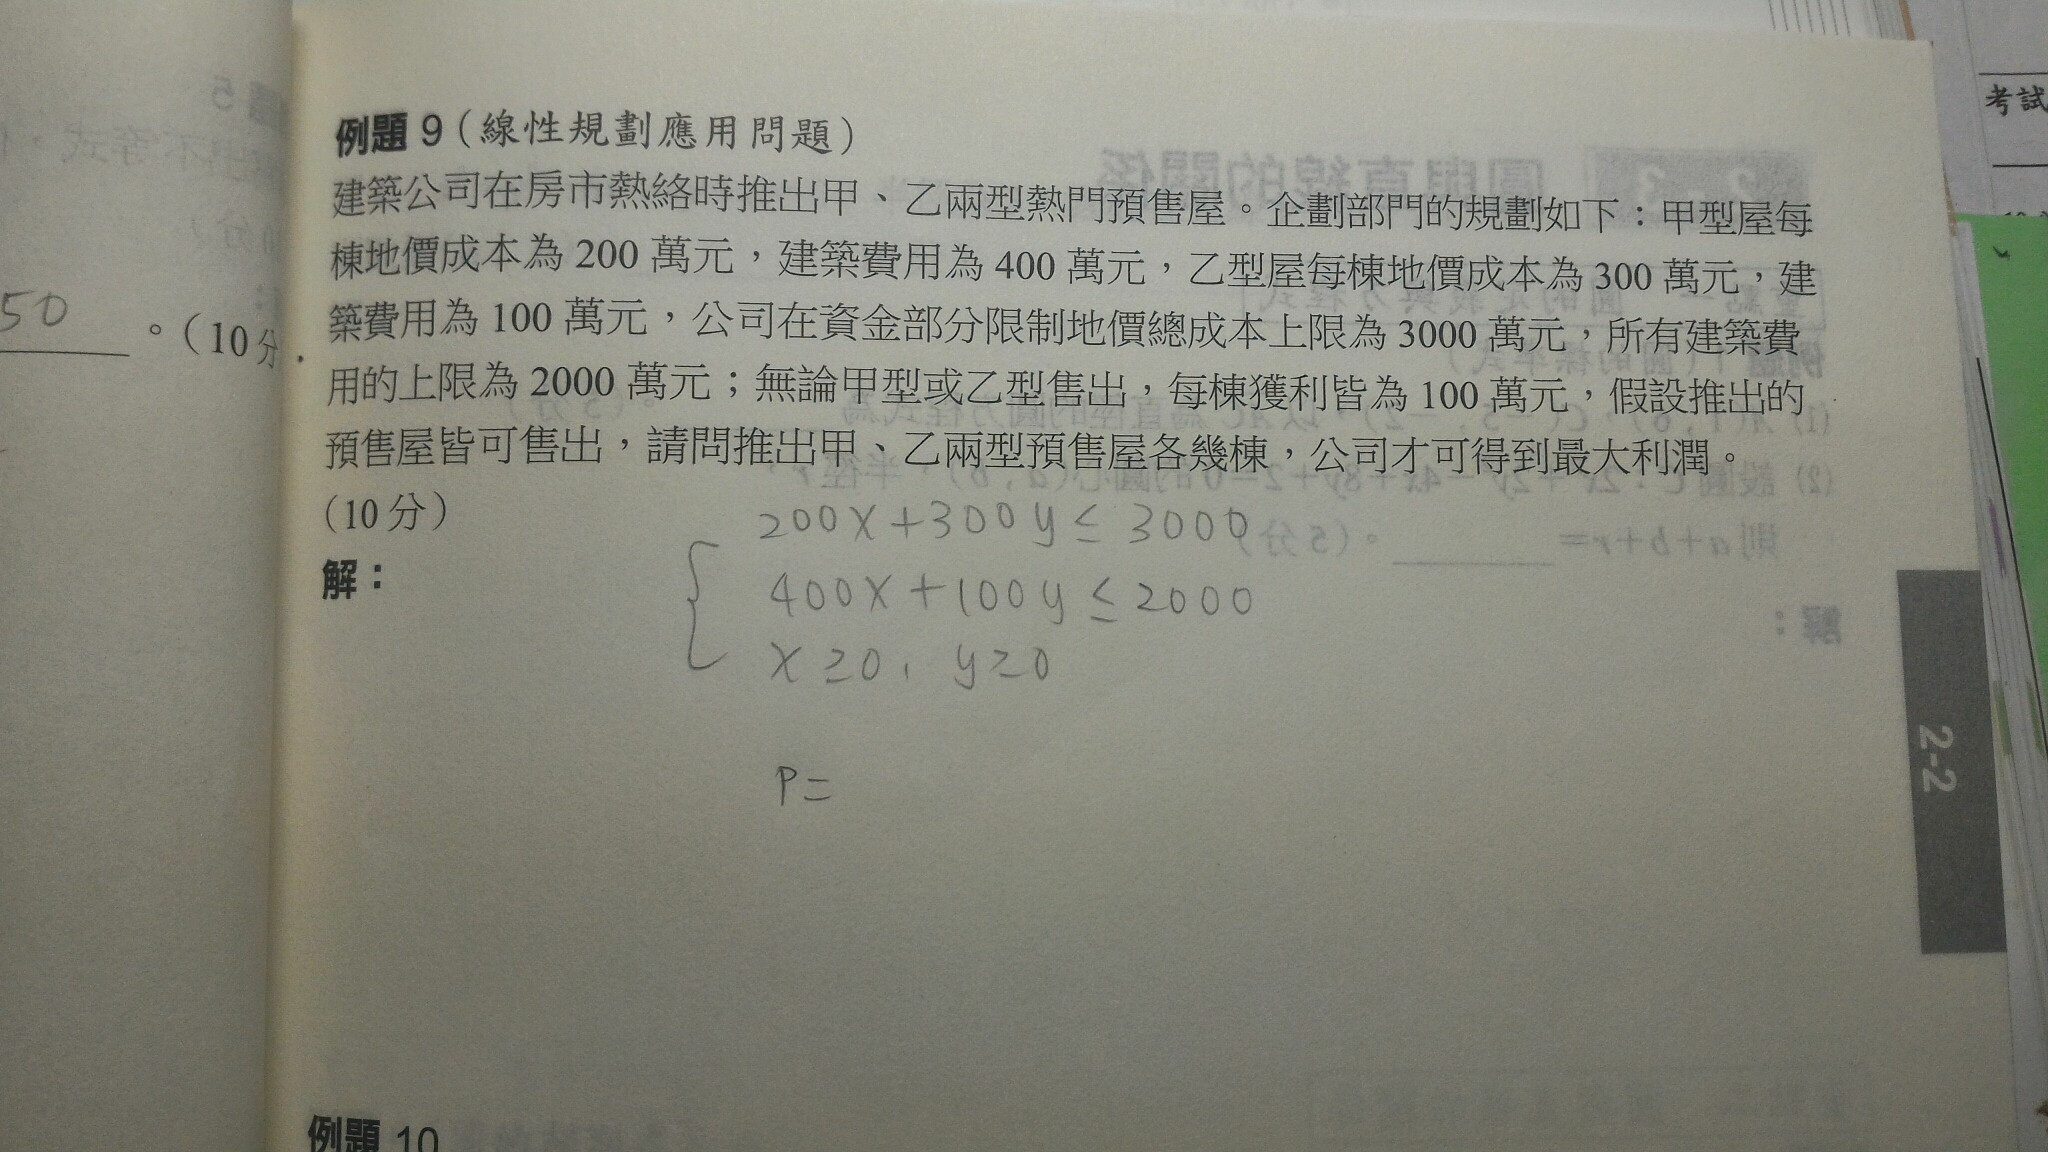 例題 9（線性規劃應用問題）
建築公司在房市熱絡時推出甲、乙兩型熱門預售屋。企劃部門的規劃如下：甲型屋每
棟地價成本為 200 萬元，建築費用為 400 萬元，乙型屋每棟地價成本為 300 萬元，建
築費用為 100 萬元，公司在資金部分限制地價總成本上限為 3000 萬元，所有建築費
用的上限為 2000 萬元；無論甲型或乙型售出，每棟獲利皆為 100 萬元，假設推出的
預售屋皆可售出，請問推出甲、乙兩型預售屋各幾棟，公司才可得到最大利潤。
（10 分）
解：
200x+300y≤3000
400x+100y≤2000
x≥0, y≥0
P=
例題 10
50 。（10 分
2-2
考試